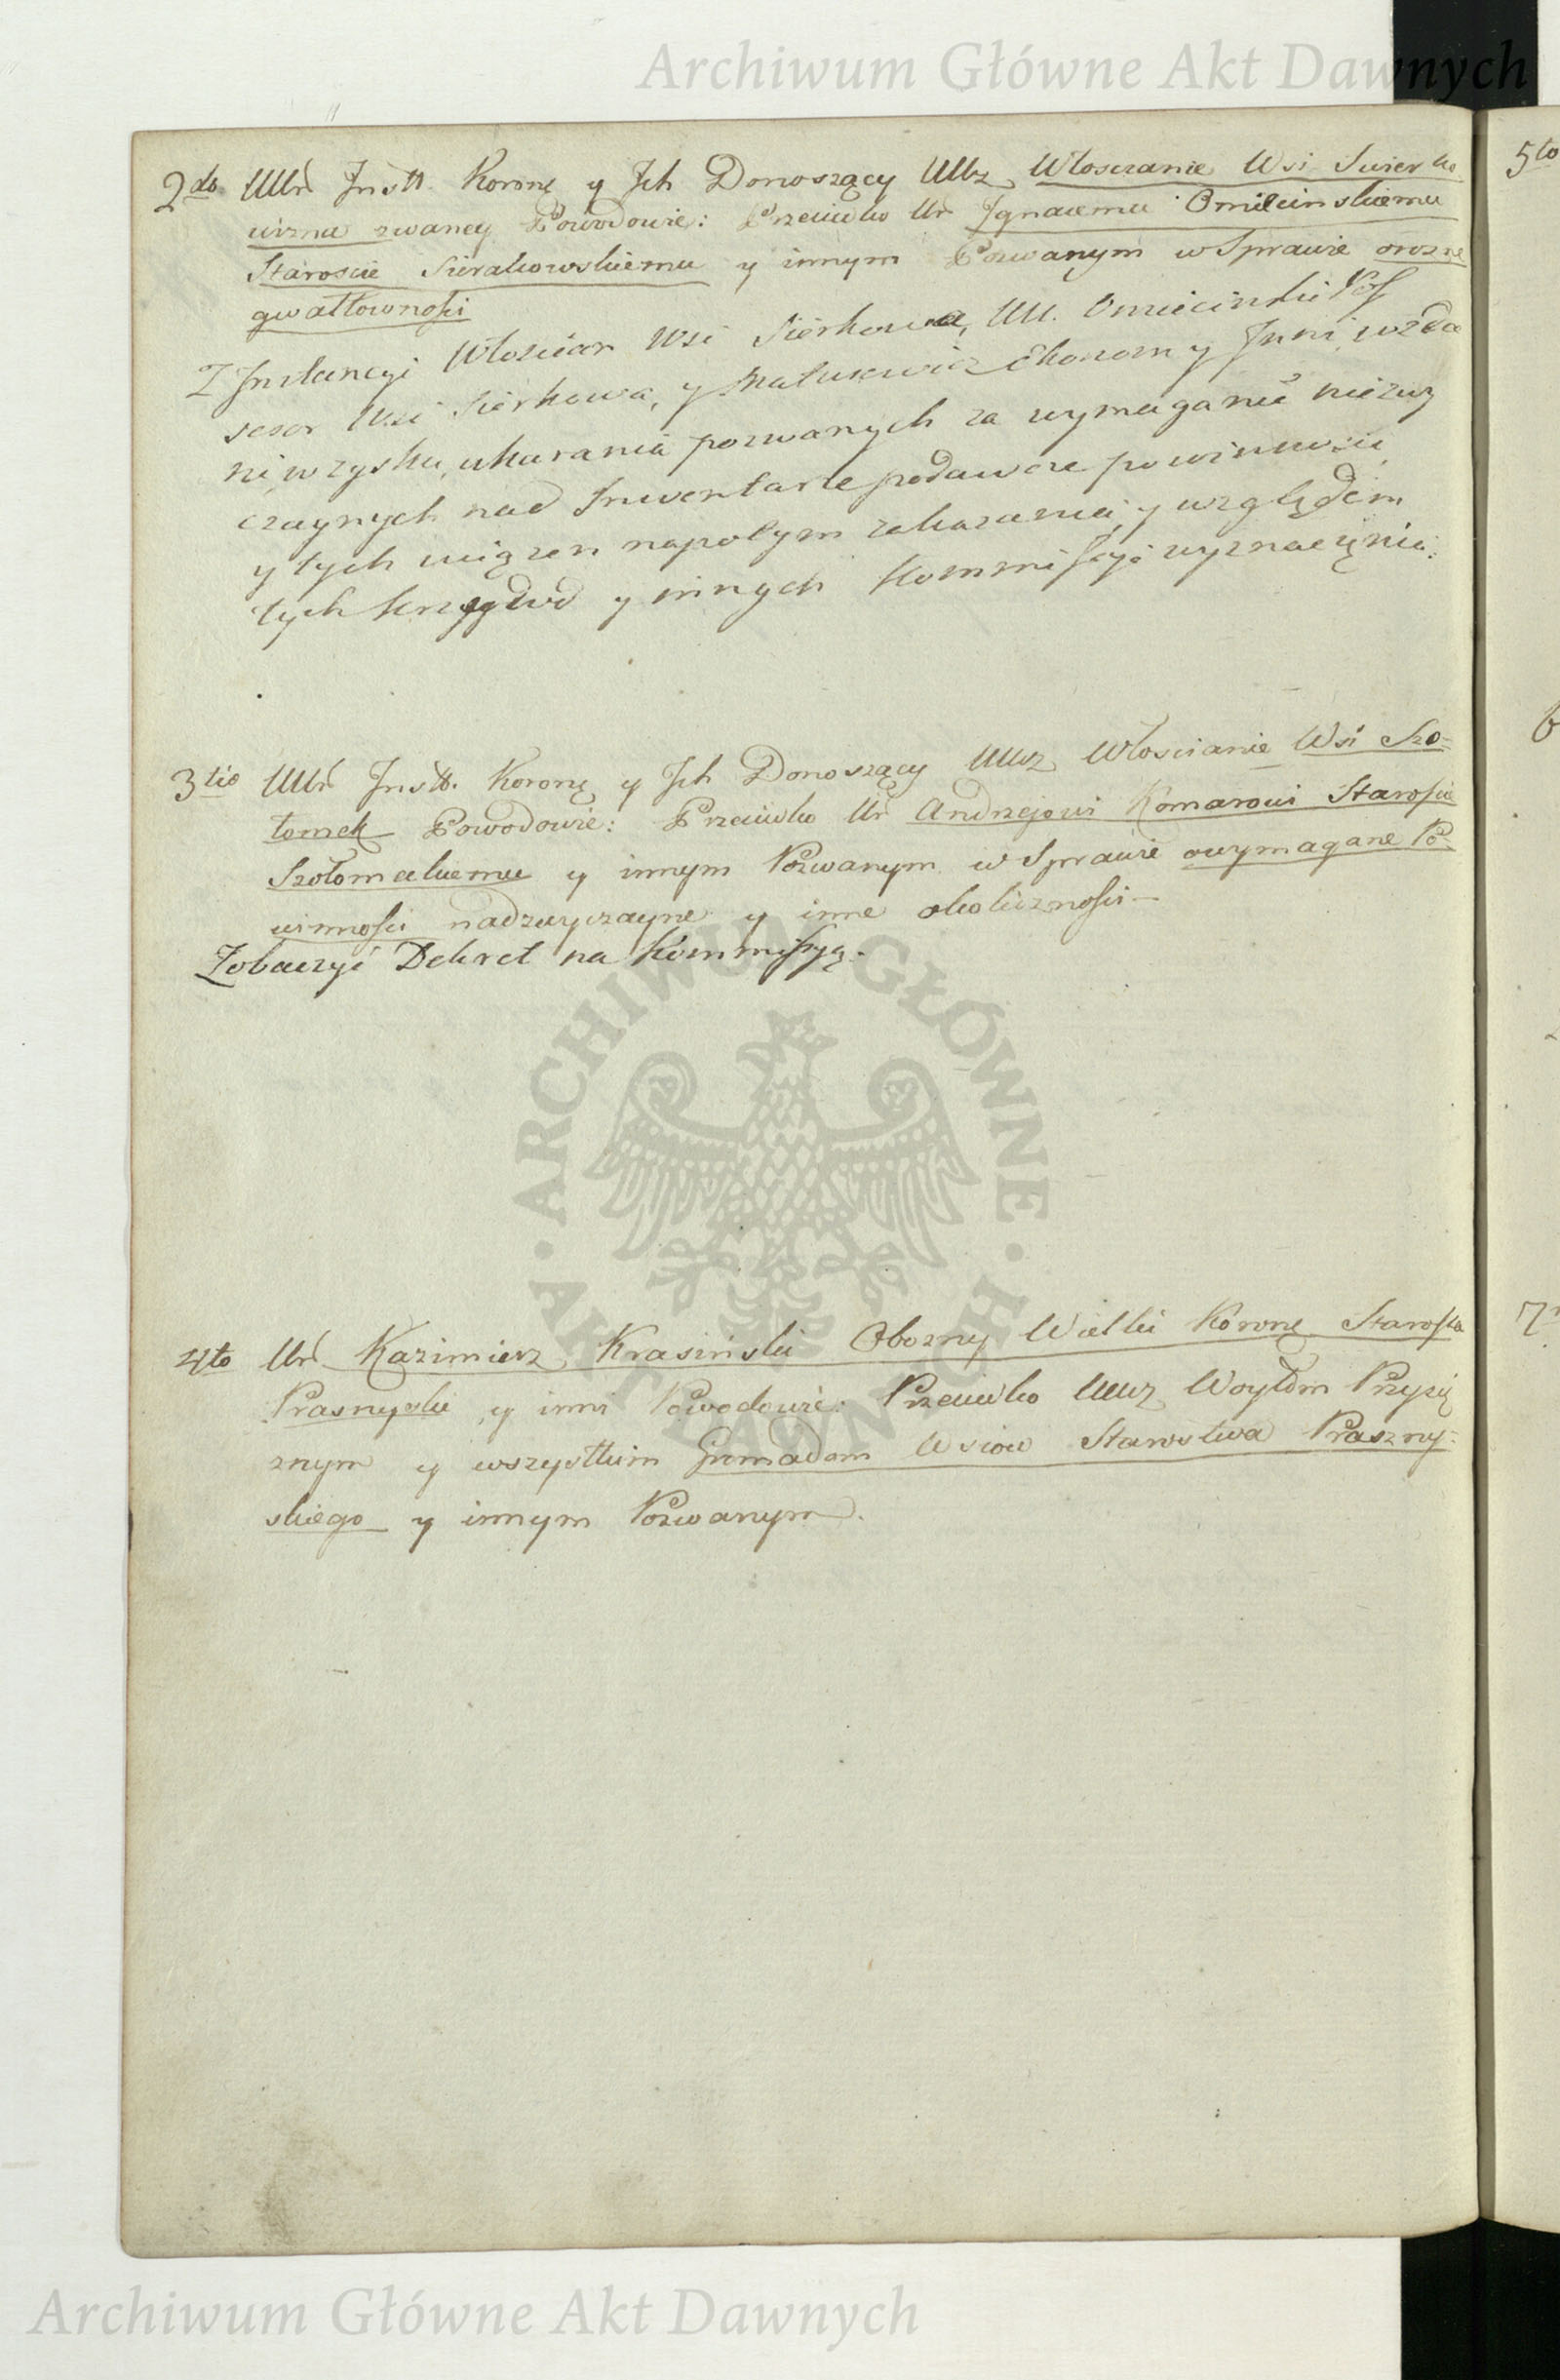 Archiwum Główne Akt Dawnych
2do UUr Instt. Koronę y Jch Donoszący UUcz Włosczanie Wsi Swierko
wizna zwaney Powodowie: Przeciwko Ur Jgnacemu Omiecinskiemu
Staroscie Sierakowskiemu y innym Pozwanym w Sprawie orozne
gwałtownosci
Z Jnstancyi Włoscian Wsi Sierkowa, UU. Omiecinski Pos
sesor Wsi Sierkowa, y Matusewicz Ekonom y Jnni, wzda
ni w zysku, ukarania pozwanych za wymaganie niezwy
czaynych nad Jnwentarze podawcze powinnosci
y tych więzen napotym zakazania, y względem
tych krzywd y innych Kommissyi wyznaczenia.
3tio UUr Instt. Koronę y Jch Donoszący UUcz Włoscianie Wsi Szo=
łomek Powodowie: Przeciwko Ur Andrzejowi Komarowi Staroscie
Szołomeckiemu y innym Pozwanym w Sprawie owymagane Po=
winnosci nadzwyczayne y inne okolicznosci
Zobaczyć Dekret na Kommissyą.
4to Ur Kazimierz Krasiński Obozny Wielki Koronę Starosta
Prasnyski y inni Powodowie: Przeciwko UUcz Woytom Przysię
znym y wszystkim Gromadom Wsiow Starostwa Praszny=
skiego y innym Pozwanym.
5to
6
7
ARCHIWUM GŁÓWNE AKT DAWNYCH
Archiwum Główne Akt Dawnych